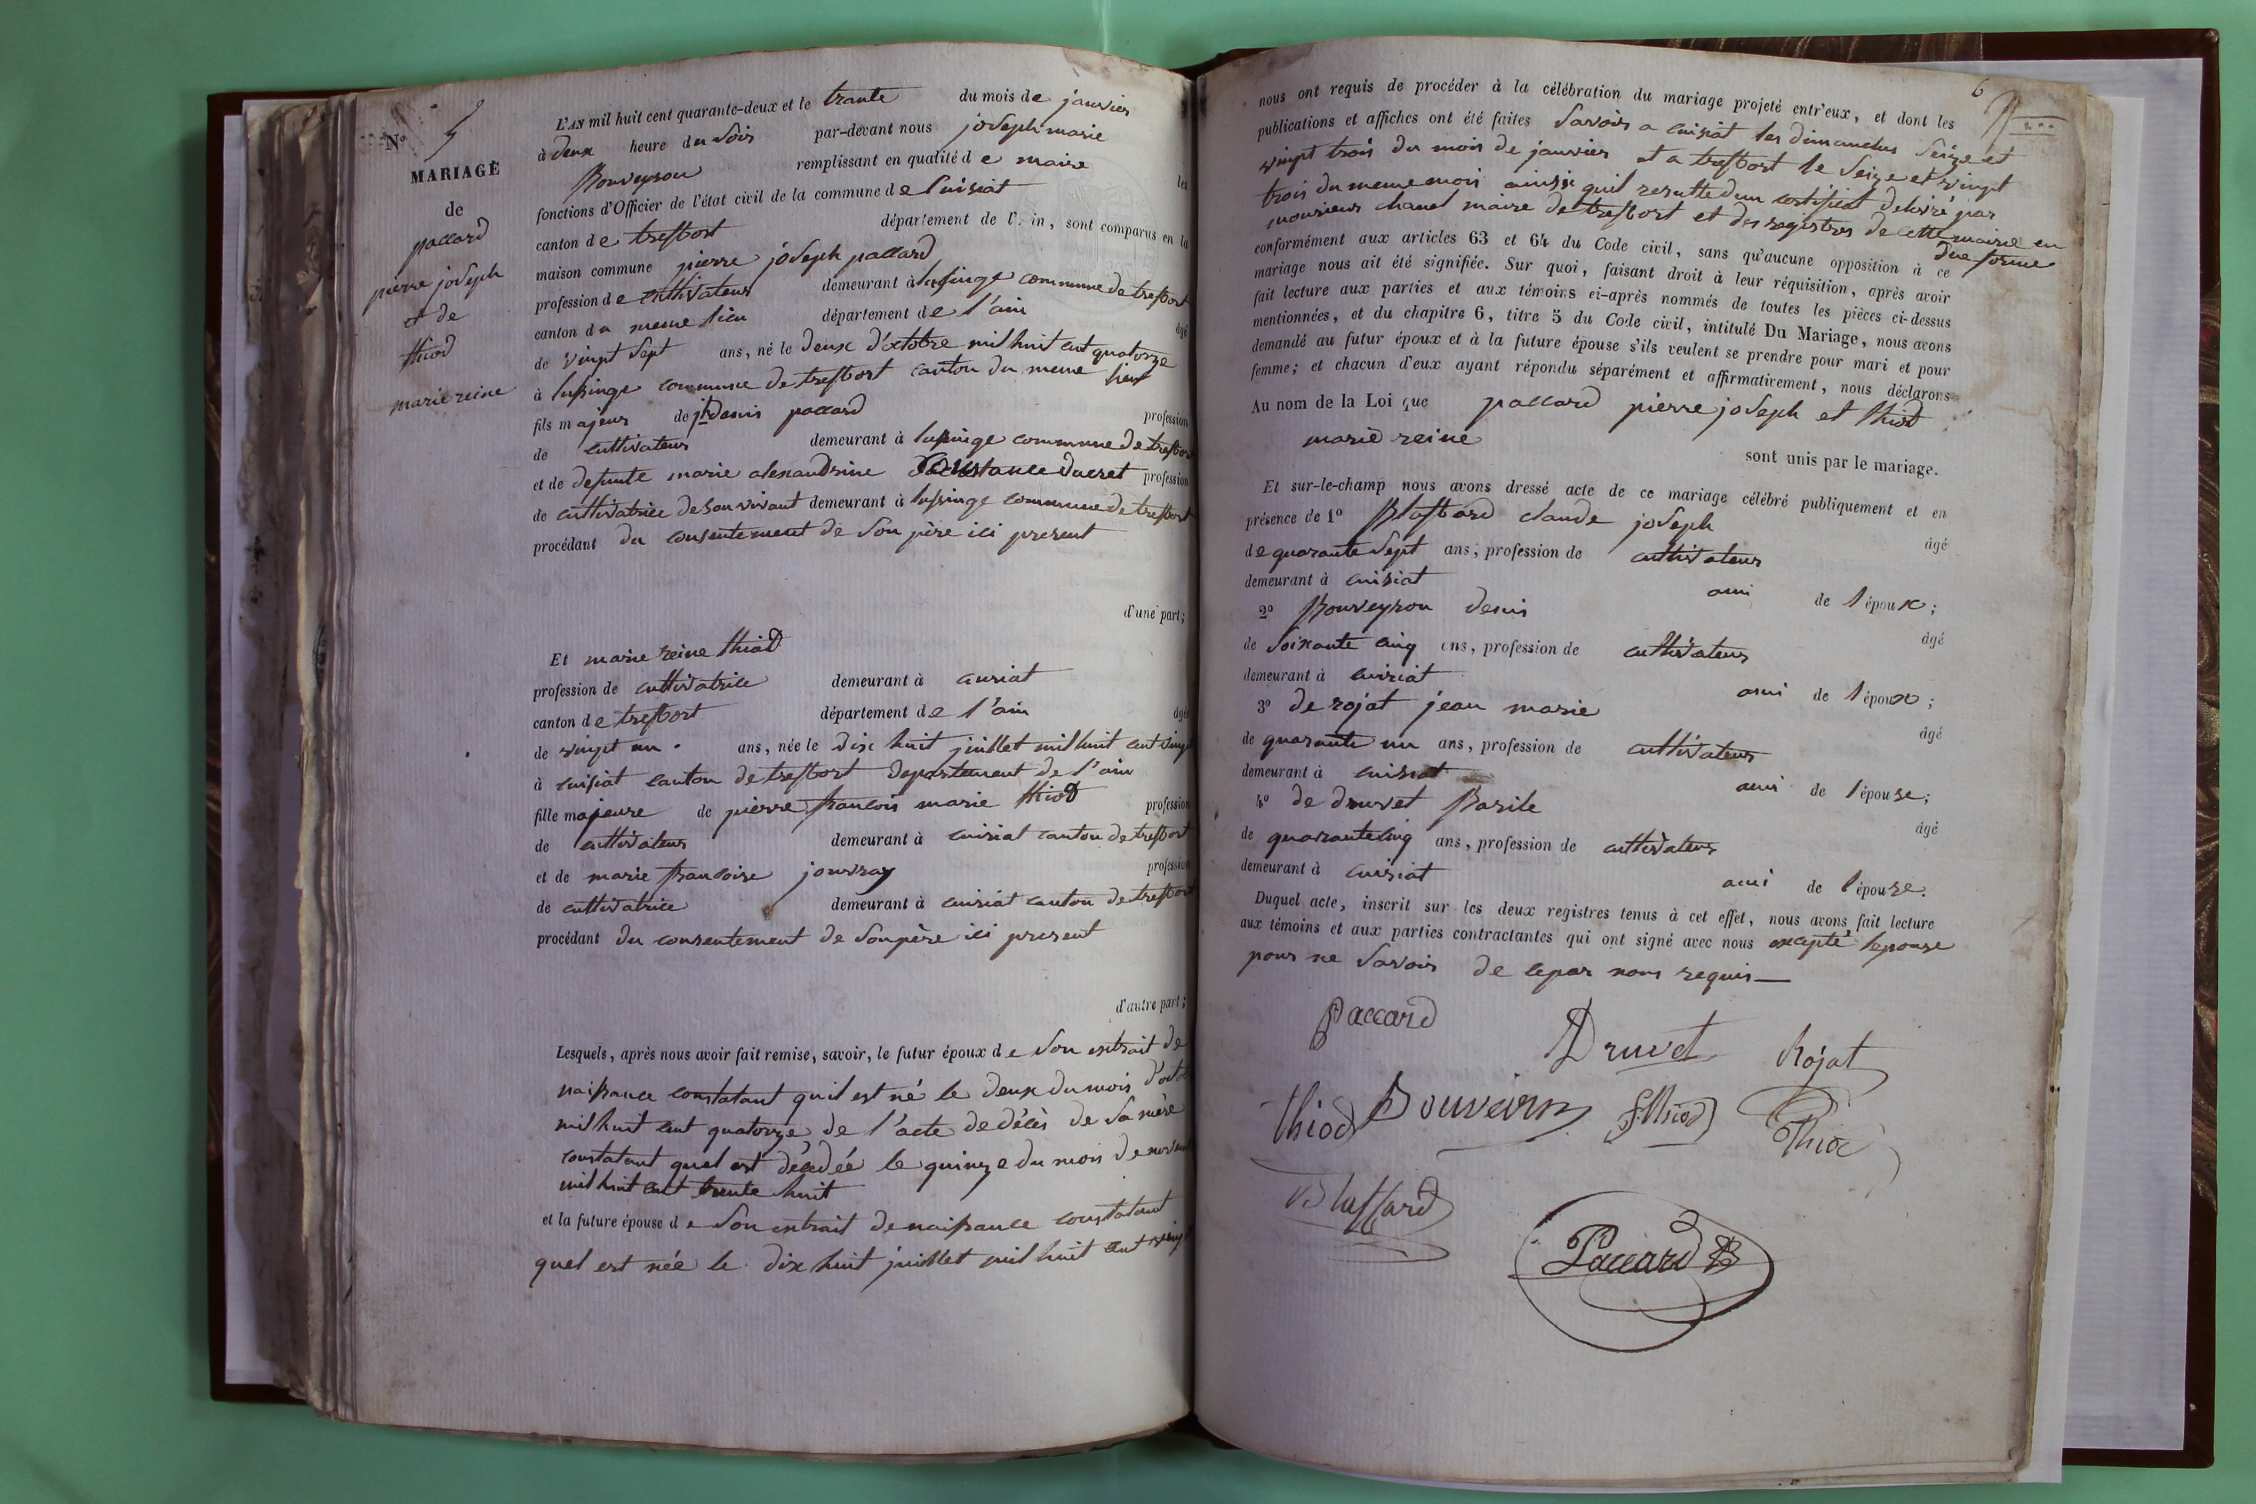 N° 5
MARIAGE
de
paccard
pierre joseph
et de
thiod
marie reine
L'AN mil huit cent quarante-deux et le trante du mois de janvier
à deux heure du soir par-devant nous joseph marie
Bouveyron remplissant en qualité de maire les
fonctions d'Officier de l'état civil de la commune de Cuisiat
canton de treffort département de l'Ain, sont comparus en la
maison commune pierre joseph paccard
profession de cultivateur demeurant à lupinge commune de treffort
canton du meme lieu département de l'ain âgé
de vingt sept ans, né le deux d'octobre mil huit cent quatorze
à lupinge commune de treffort canton du meme lieu
fils majeur de jh denis paccard profession
de cultivateur demeurant à lupinge commune de treffort
et de defunte marie alexandrine Constance ducret profession
de cultivatrice de son vivant demeurant à lupinge commune de treffort
procédant du consentement de son père ici present
d'une part;
Et marie reine thiod
profession de cultivatrice demeurant à cuisiat
canton de treffort département de l'ain âgée
de vingt un ans, née le dix huit juillet mil huit cent vingt
à cuisiat canton de treffort departement de l'ain
fille majeure de pierre francois marie thiod profession
de cultivateur demeurant à cuisiat canton de treffort
et de marie francoise jouvray profession
de cultivatrice demeurant à cuisiat canton de treffort
procédant du consentement de son père ici present
d'autre part;
Lesquels, après nous avoir fait remise, savoir, le futur époux de son extrait de
naissance constatant quil est né le deux du mois d'octobre
mil huit cent quatorze de l'acte de décès de sa mère
constatant quel est décedée le quinze du mois de novembre
mil huit cent trente huit
et la future épouse de son extrait de naissance constatant
quel est née le dix huit juillet mil huit cent vingt
6
nous ont requis de procéder à la célébration du mariage projeté entr'eux, et dont les
publications et affiches ont été faites savoir a cuisiat les dimanches seize et
vingt trois du mois de janvier et a treffort le seize et vingt
trois du meme mois ainsi quil resulte dun certificat delivré par
monsieur chanel maire de treffort et des registres de cette mairie en
due forme
conformément aux articles 63 et 64 du Code civil, sans qu'aucune opposition à ce
mariage nous ait été signifiée. Sur quoi, faisant droit à leur réquisition, après avoir
fait lecture aux parties et aux témoins ci-après nommés de toutes les pièces ci-dessus
mentionnées, et du chapitre 6, titre 5 du Code civil, intitulé Du Mariage, nous avons
demandé au futur époux et à la future épouse s'ils veulent se prendre pour mari et pour
femme; et chacun d'eux ayant répondu séparément et affirmativement, nous déclarons
Au nom de la Loi que paccard pierre joseph et thiod
marie reine
sont unis par le mariage.
Et sur-le-champ nous avons dressé acte de ce mariage célébré publiquement et en
présence de 1° Blaffard claude joseph âgé
de quarante sept ans, profession de cultivateur
demeurant à cuisiat ami de l'époux;
2° Bouveyron denis âgé
de soixante cinq ans, profession de cultivateur
demeurant à cuisiat ami de l'époux;
3° de rojat jean marie âgé
de quarante un ans, profession de cultivateur
demeurant à cuisiat ami de l'épouse;
4° de druvet Basile âgé
de quarante cinq ans, profession de cultivateur
demeurant à cuisiat ami de l'épouse.
Duquel acte, inscrit sur les deux registres tenus à cet effet, nous avons fait lecture
aux témoins et aux parties contractantes qui ont signé avec nous excepté lepouse
pour ne savoir de ce par nous requis
Paccard
Druvet Rojat
thiod Bouveiron f thiod
Thiod
Blaffard
Paccard